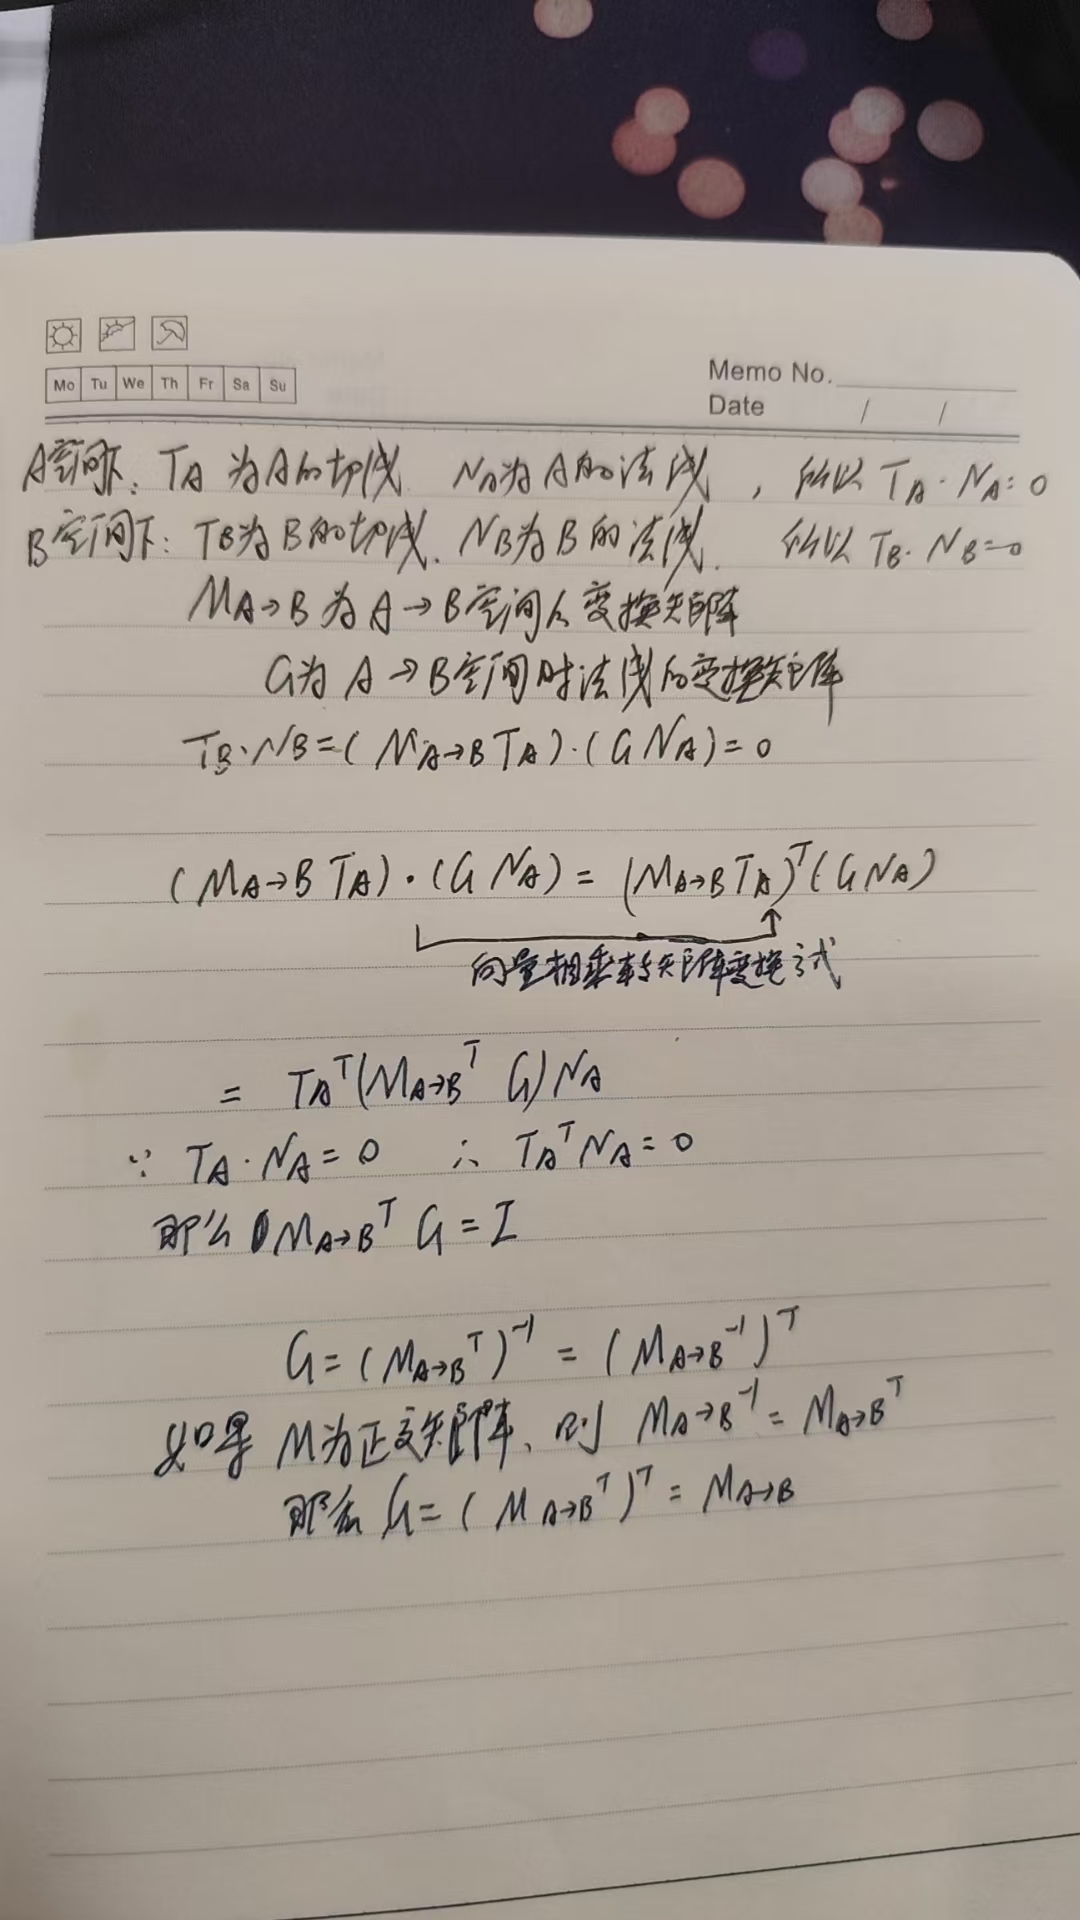 Mo Tu We Th Fr Sa Su
Memo No.
Date / /
A空间下: TA 为A的切线 NA为A的法线, 所以 TA · NA = 0
B空间下: TB为B的切线. NB为B的法线. 所以 TB · NB = 0
MA→B 为 A→B空间的变换矩阵
G为 A→B空间时法线的变换矩阵
TB·NB = (MA→B TA)·(G NA) = 0
(MA→B TA)·(G NA) = (MA→B TA)ᵀ(G NA)
向量相乘转矩阵变换式
= TAᵀ(MA→Bᵀ G)NA
∵ TA·NA = 0 ∴ TAᵀNA = 0
那么 MA→Bᵀ G = I
G = (MA→Bᵀ)⁻¹ = (MA→B⁻¹)ᵀ
如果 M为正交矩阵, 则 MA→B⁻¹ = MA→Bᵀ
那么 G = (MA→Bᵀ)ᵀ = MA→B